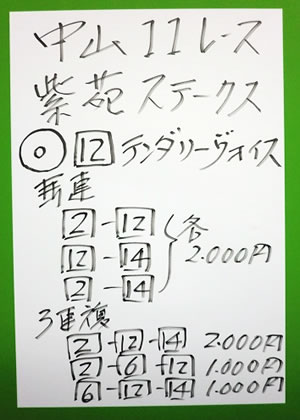 中山11レース
紫苑ステークス
◎ 12 テンダリーヴォイス
馬連
2-12
12-14
2-14
各
2.000円
3連複
2-12-14 2.000円
2-6-12 1.000円
6-12-14 1.000円